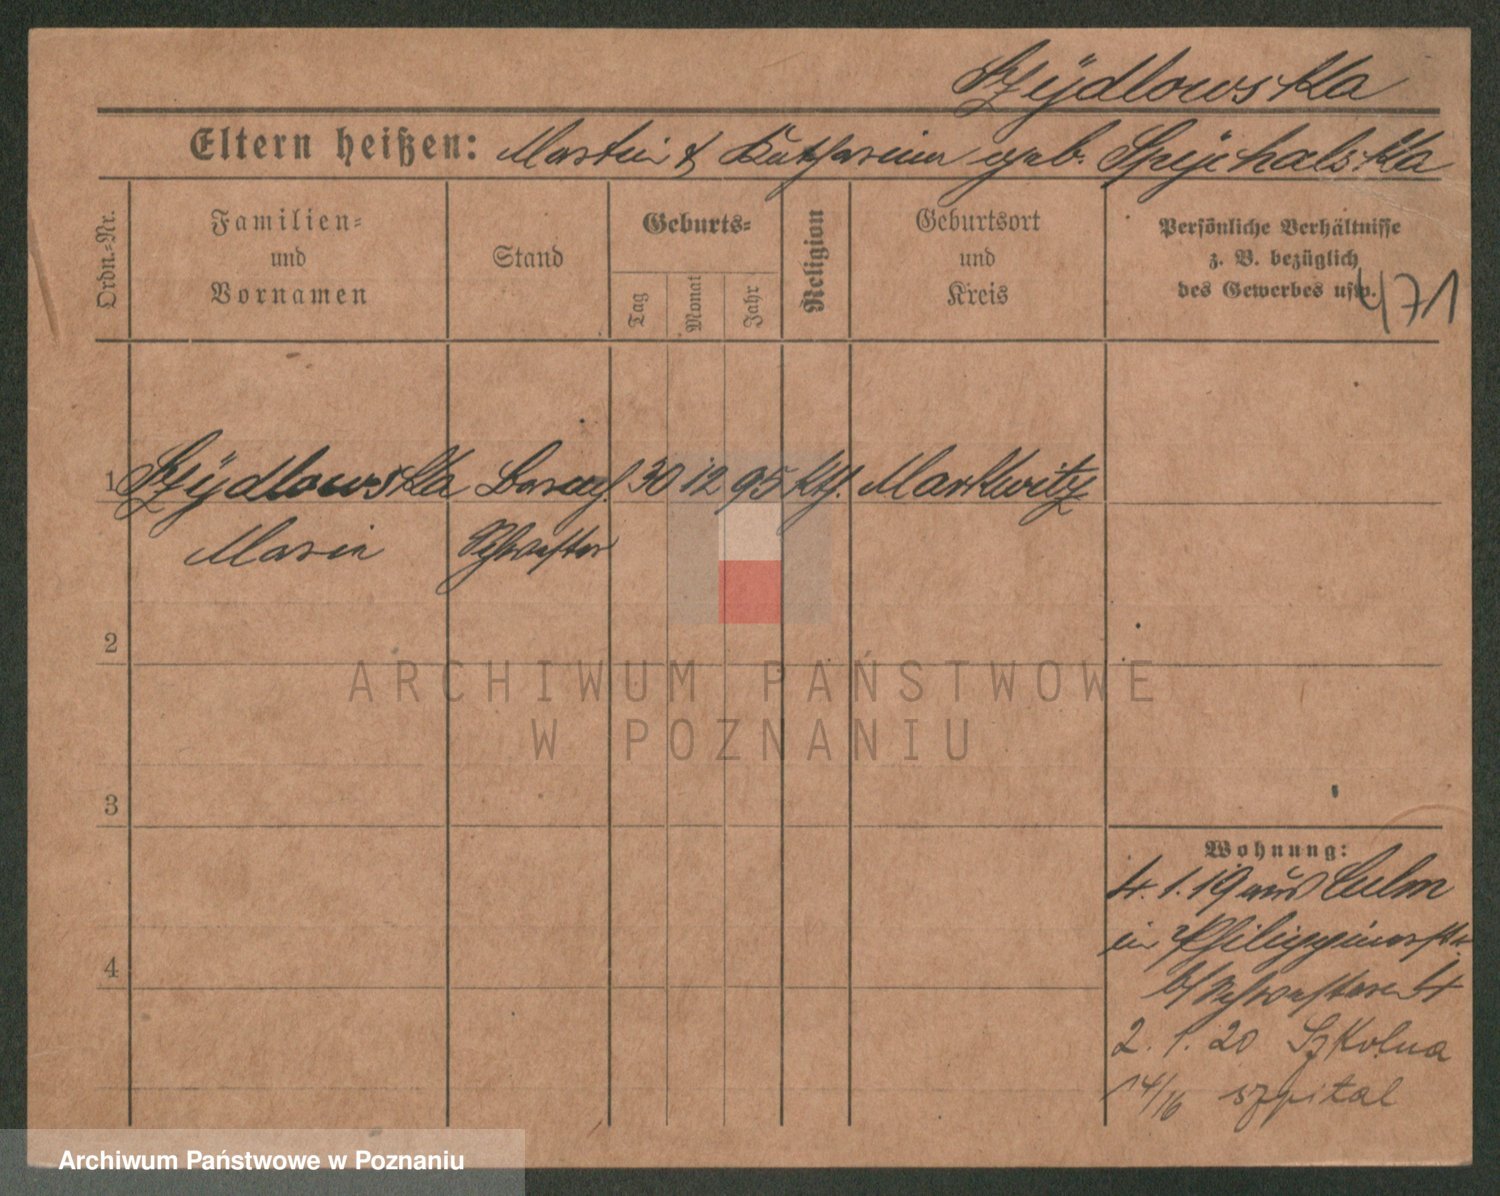 Szÿdlowska
Eltern heißen: Martin & Katharina geb. Spÿchalska
Ordn.-Nr.
Familien-
und
Vornamen
Stand
Geburts-
Tag
Monat
Jahr
Religion
Geburtsort
und
Kreis
Persönliche Verhältnisse
z. B. bezüglich
des Gewerbes usw.
471
1 Szÿdlowska Barmh. 30 12 95 kth. Markwitz
Maria Schwester
2
3
4
Wohnung:
4. 1. 19 aus Culm
in Philippinerstr.
b/ Schwestern
2. 1. 20 Szkolna
14/16 szpital
ARCHIWUM PAŃSTWOWE
W POZNANIU
Archiwum Państwowe w Poznaniu